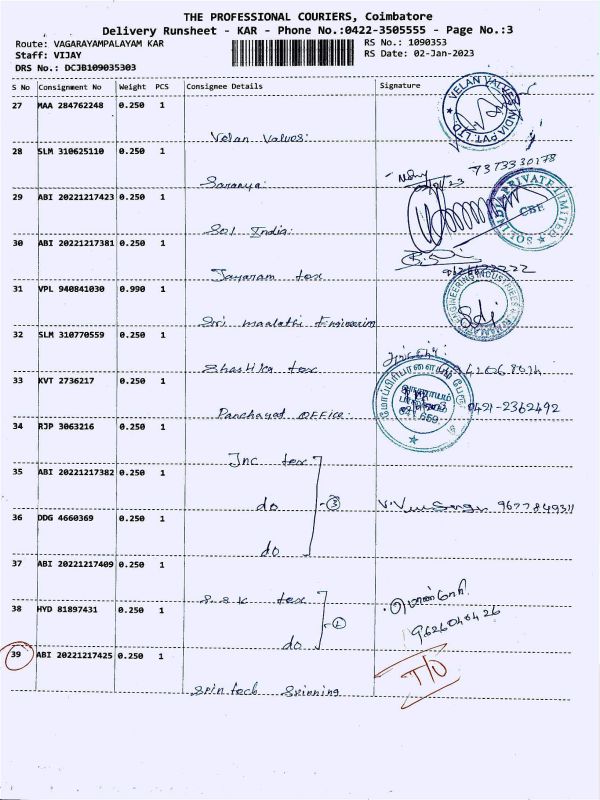 THE PROFESSIONAL COURIERS, Coimbatore
Delivery Runsheet - KAR - Phone No.:0422-3505555 - Page No.:3
Route: VAGARAYAMPALAYAM KAR
RS No.: 1090353
Staff: VIJAY
RS Date: 02-Jan-2023
DRS No.: DCJB109035303
S No Consignment No Weight PCS Consignee Details Signature
27 MAA 284762248 0.250 1
VELAN VALVES INDIA PVT. LTD.
Velan Valves:
28 SLM 310625110 0.250 1
7373330178
Saranya
29 ABI 20221217423 0.250 1
SOL INDIA PRIVATE LIMITED
CBE
Sol India:
30 ABI 20221217381 0.250 1
Jayaram tex
31 VPL 940841030 0.990 1
ENGINEERING INDUSTRIES
Sri Maalathi Engineering
32 SLM 310770559 0.250 1
Shastika tex
33 KVT 2736217 0.250 1
0421-2362492
Panchayat OFFICE:
34 RJP 3063216 0.250 1
Jnc tex
35 ABI 20221217382 0.250 1
do
③
9677849311
36 DDG 4660369 0.250 1
do
37 ABI 20221217409 0.250 1
S.S.K tex
38 HYD 81897431 0.250 1
do
39 ABI 20221217425 0.250 1
T/O
Spintech Spinning